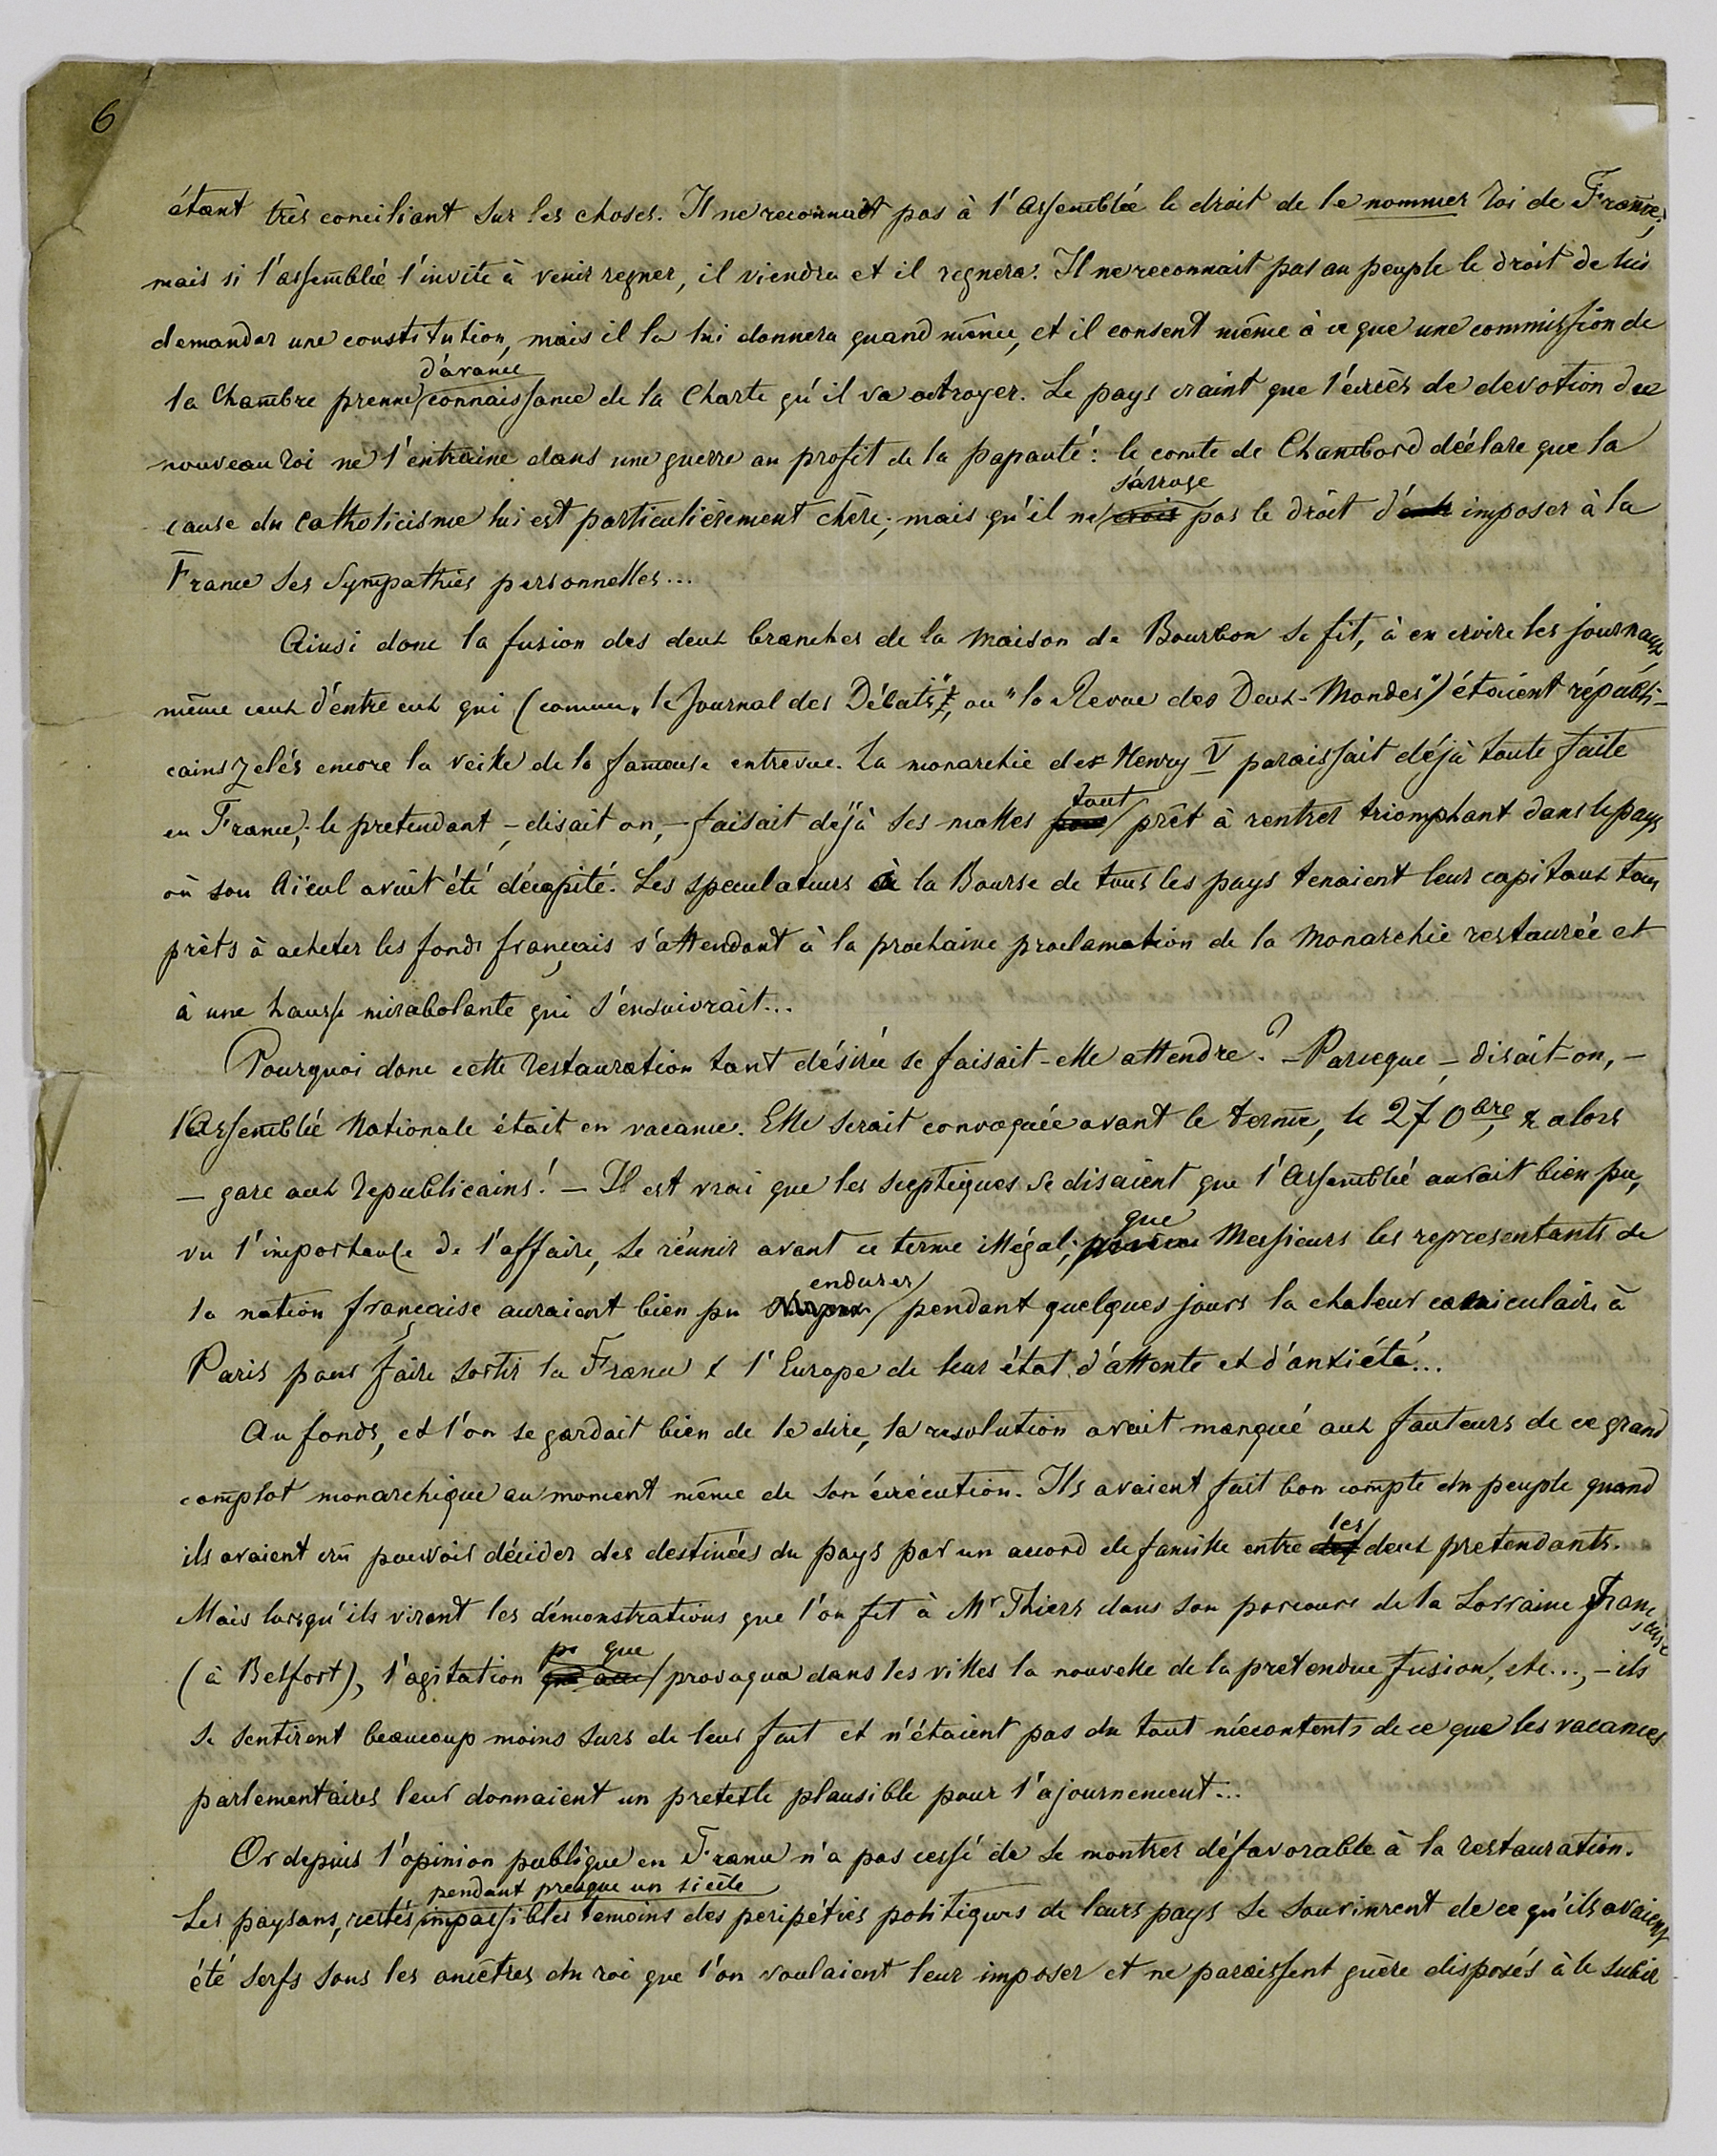 6
étant très conciliant sur les choses. Il ne reconnait pas à l'Assemblée le droit de le nommer roi de France;
mais si l'assemblée l'invite à venir regner, il viendra et il regnera. Il ne reconnait pas au peuple le droit de lui
demander une constitution, mais il la lui donnera quand même, et il consent même à ce que une commission de
d'avance
la Chambre prenne connaissance de la Charte qu'il va octroyer. Le pays craint que l'excès de devotion du
nouveau roi ne l'entraine dans une guerre au profit de la papauté: le comte de Chambord déclare que la
s'arroge
cause du catholicisme lui est particulièrement chère; mais qu'il ne crois pas le droit d' imposer à la
France ses sympathies personnelles...
Ainsi donc la fusion des deux branches de la maison de Bourbon se fit, à en croire les journaux,
même ceux d'entre eux qui (comme „le Journal des Débats", ou "la Revue des Deux-Mondes") étaient républi-
cains zelés encore la veille de la fameuse entrevue. La monarchie de Henry V paraissait déjà toute faite
tout
en France; le pretendant, – disait on, – faisait déjà ses malles pour prêt à rentrer triomphant dans le pays
où son Aïeul avait été décapité. Les speculateurs à la Bourse de tous les pays tenaient leur capitaux tous
prêts à acheter les fonds français s'attendant à la prochaine proclamation de la Monarchie restaurée et
à une hausse mirabolante qui s'ensuivrait...
Pourquoi donc cette restauration tant désirée se faisait-elle attendre? – Parceque – disait-on, –
l'Assemblée Nationale était en vacance. Elle serait convoquée avant le terme, le 27 0bre, & alors
– gare aux republicains! – Il est vrai que les sceptiques se disaient que l'Assemblée aurait bien pu,
que
vu l'importance de l'affaire, se réunir avant ce terme illégal; Messieurs les representants de
endurer
la nation française auraient bien pu pendant quelques jours la chaleur caniculaire à
Paris pour faire sortir la France & l'Europe de leur état d'attente et d'anxiété...
Au fonds, et l'on se gardait bien de le dire, la resolution avait manqué aux fauteurs de ce grand
complot monarchique au moment même de son éxécution. Ils avaient fait bon compte du peuple quand
les
ils avaient crû pouvoir décider des destinées du pays par un accord de famille entre des deux pretendants.
Mais lorsqu'ils virent les démonstrations que l'on fit à Mr Thiers dans son parcours de la Lorraine française
que
(à Belfort), l'agitation provoqua dans les villes la nouvelle de la pretendue fusion, etc..., – ils
se sentirent beaucoup moins surs de leur fait et n'étaient pas du tout mécontents de ce que les vacances
parlementaires leur donnaient un pretexte plausible pour l'ajournement...
Or depuis l'opinion publique en France n'a pas cessé de se montrer défavorable à la restauration.
pendant presque un siècle
Les paysans, restés impassibles temoins des peripéties politiques de leurs pays se souvinrent de ce qu'ils avaient
été serfs sous les ancêtres du roi que l'on voulaient leur imposer et ne paraissent guère disposés à le subir